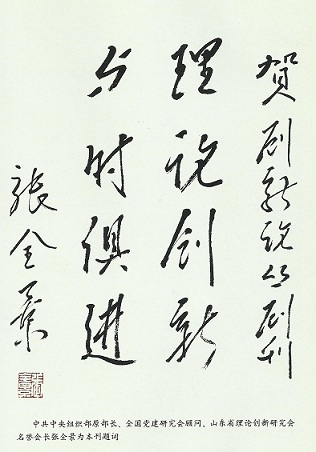 賀创新论丛创刊
理论創新
与时俱進
張全景
中共中央组织部原部长、全国党建研究会顾问、山东省理论创新研究会
名誉会长张全景为本刊题词